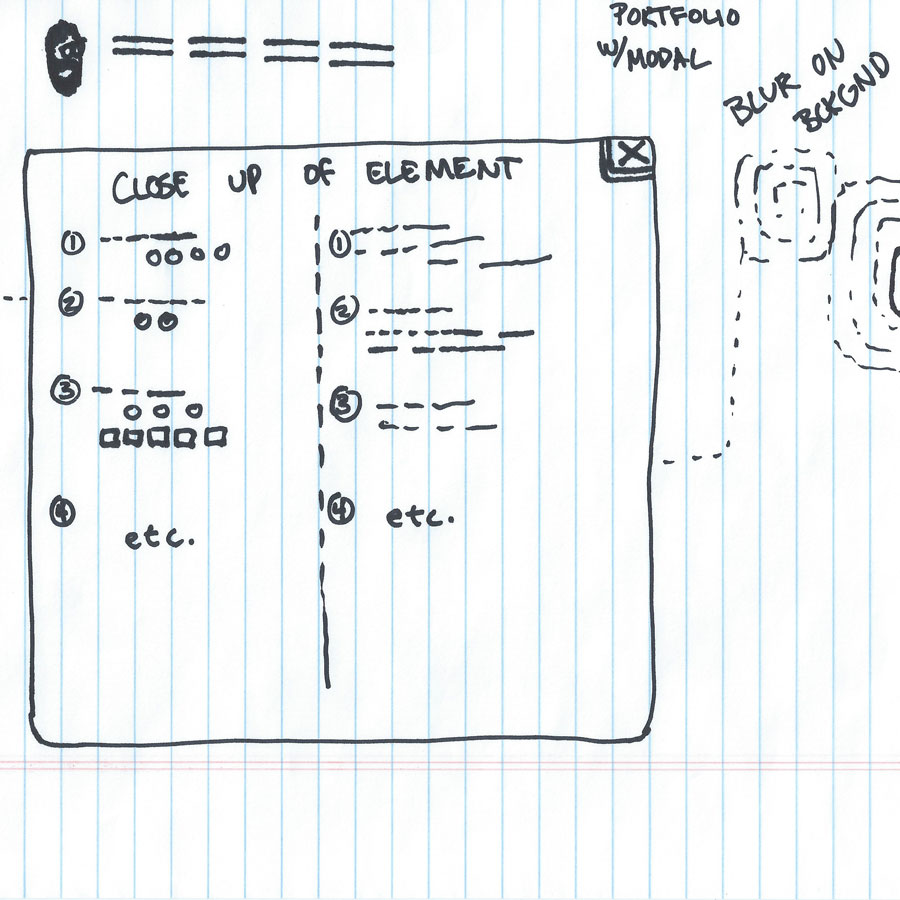 PORTFOLIO
W/MODAL
BLUR ON
BCKGND
X
CLOSE UP OF ELEMENT
1
2
3
4
etc.
1
2
3
4
etc.